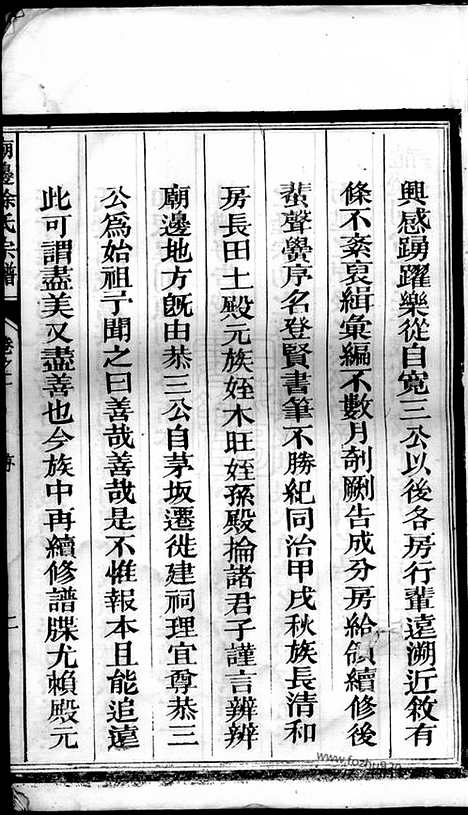 興感踴躍樂從自寬三公以後各房行輩遠溯近敘有
條不紊裒緝彙編不數月剞劂告成分房給領續修後
蜚聲黌序名登賢書筆不勝紀同治甲戌秋族長清和
房長田土殿元族姪木旺姪孫殿掄諸君子謹言辨辨
廟邊地方旣由恭三公自茅坂遷徙建祠理宜尊恭三
公為始祖予聞之曰善哉善哉是不惟報本且能追遠
此可謂盡美又盡善也今族中再續修譜牒尤賴殿元
廟邊徐氏宗譜 卷之一 序 二
www.fozhu920.com